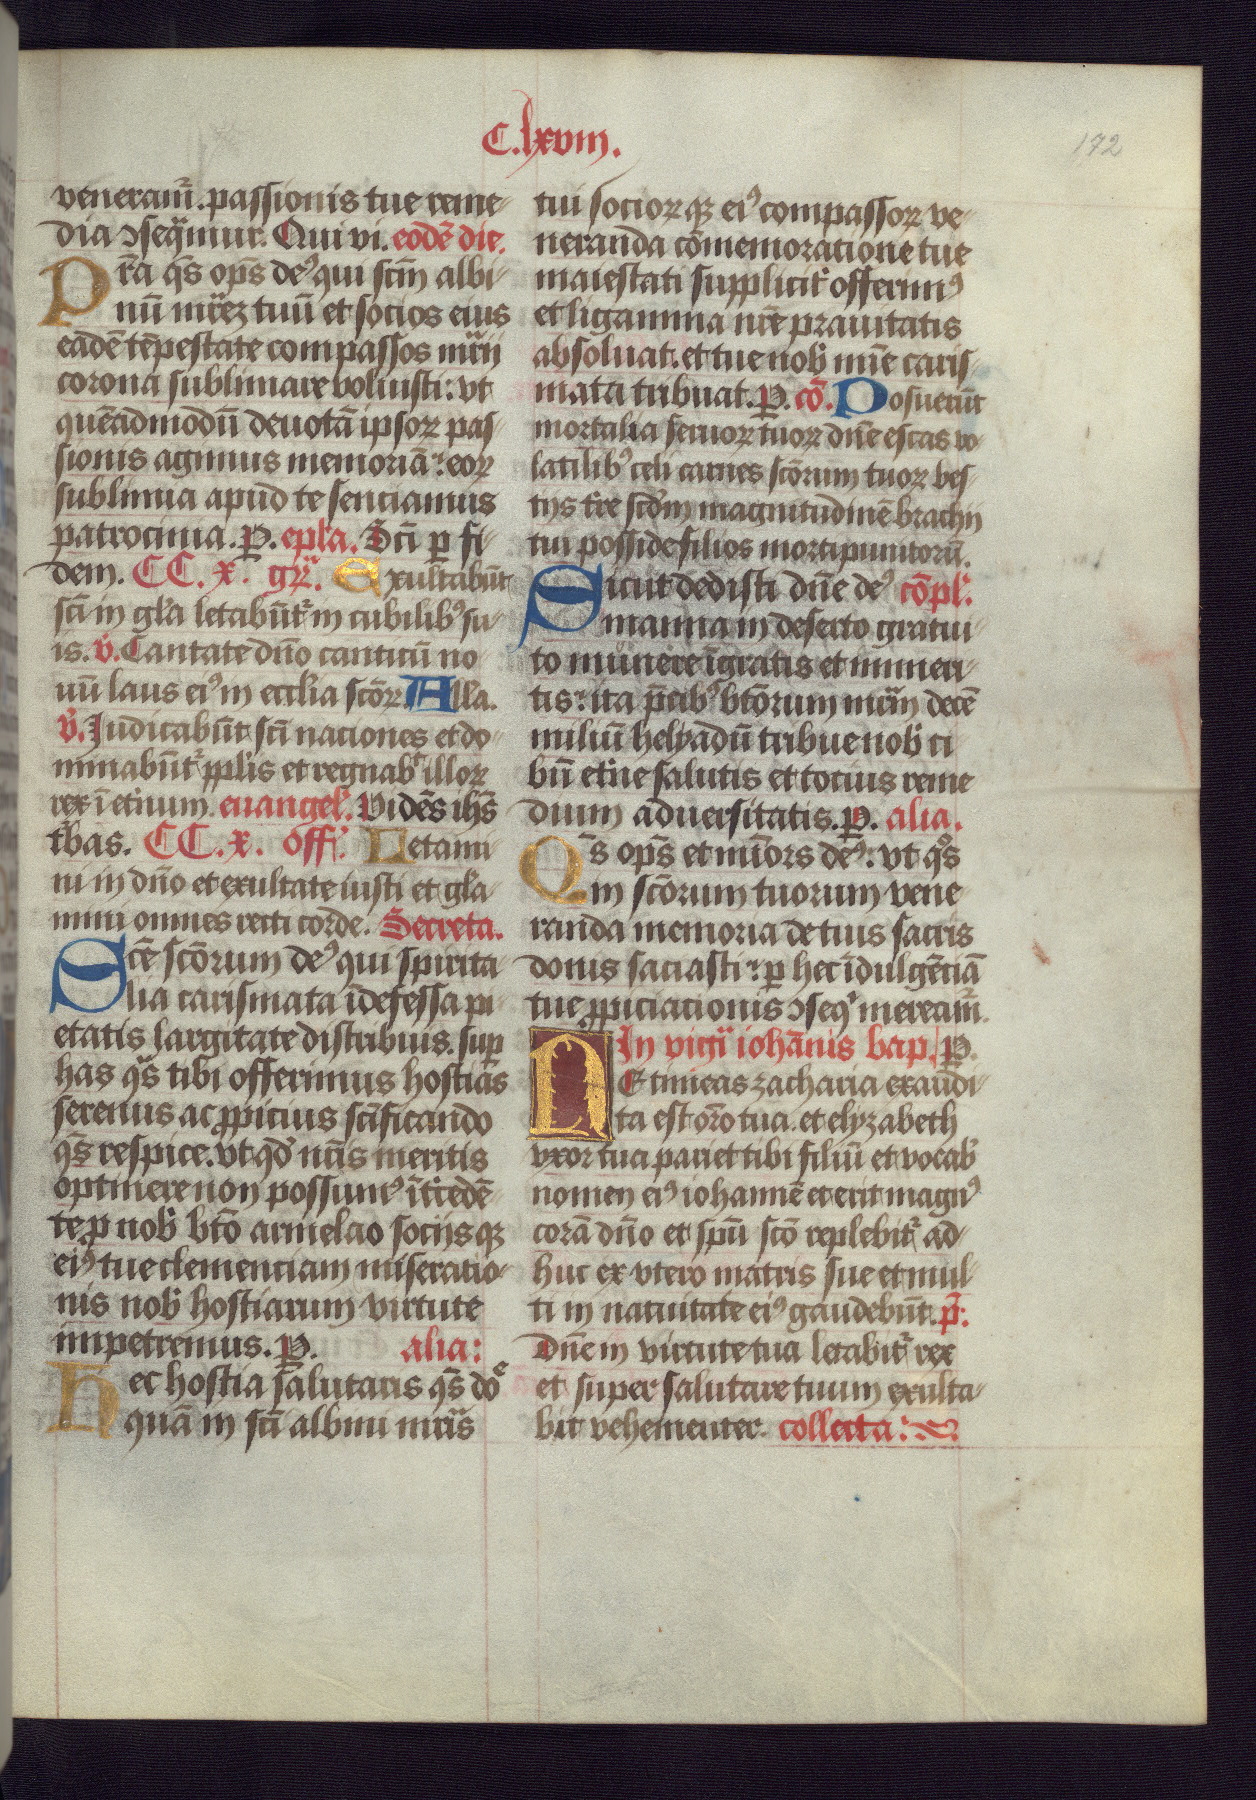 C.lxviii.
172
veneramr̃. passionis tue reme-
dia ꝯseq̃mur. Qui vi. eodẽ die.
Pr̃a q̃s op̃s deꝰ qui scm̃ albi-
nũ mr̃ez tuũ et socios eius
eadẽ tẽpestate compassos mr̃ij
corona sublimare voluisti: vt
quẽadmodũ deuotã ipsoꝝ pas-
sionis agimus memoriã: eoꝝ
sublimia apud te senciamus
patrocinia. P. epl̃a. Sc̃i ꝑ fi-
dem. CC. x. gr̃. Exultabũt
sc̃i in gl̃a letabũtr̃ in cubilibꝰ su-
is. v̓. Cantate dño canticũ no
uũ laus eiꝰ in eccl̃ia sc̃oꝝ Alla.
v̓. Judicabũt sc̃i naciones et do-
minabũtr̃ ppl̃is et regnab̓ illoꝝ
rex ĩ et̃num. euangel̓. Vidẽs ih̃s
t̓bas. CC. x. off̓. Letami-
ni in dño et exultate iusti et gl̃a-
mini omnes recti corde. Secreta.
Sc̃e sc̃orum deꝰ qui spirita
lia carismata ĩdefessa pi-
etatis largitate distribuis. suꝑ
has q̃s tibi offerimus hostias
serenus ac ꝓpicius sc̃ificando
q̃s respice. vt qd̓ nr̃is meritis
optinere non possumꝰ ĩt̓cedẽ-
te ꝓ nob̓ bt̃o armelao socijsqꝫ
eiꝰ tue clemenciam miseratio-
nis nob̓ hostiarum virtute
impetremus. P. alia:
Hec hostia salutaris q̃s dõe
quã in sc̃i albini mr̃is
tui socioꝝqꝫ eiꝰ compassoꝝ ve-
neranda cõmemoratione tue
maiestati supplicit̓ offerimꝰ
et ligamina nr̃e prauitatis
absoluat. et tue nob̓ mie caris-
mata tribuat. P. cõ. Posuerũt
mortalia seruoꝝ tuoꝝ dñe escas vo-
latilibꝰ celi carnes sc̃orum tuoꝝ bes-
tijs t̓re scd̓m magnitudinẽ brachij
tui posside filios morti punitorũ.
Sicut dedisti dñe deꝰ cõpl̓.
manna in deserto gratui-
to munere ĩgratis et inmeri-
tis: ita p̃cibꝰ bt̃orum mr̃im decẽ
miliũ helyadũ tribue nob̓ ci
bũ et̓ne salutis et tocius reme
dium aduersitatis. P. alia.
Qs op̃s et mĩors deꝰ: vt qͦs
in sc̃orum tuorum vene-
randa memoria de tuis sacris
donis saciasti: ꝑ hec ĩdulgẽciã
tue ꝓpiciacionis ꝯseqͥ mereamr̃.
In vigi̓ iohãnis bap. P.
Ne timeas zacharia exaudi-
ta est or̃o tua. et elyzabeth
vxor tua pariet tibi filiũ et vocab̓
nomen eiꝰ iohannẽ et erit magnꝰ
corã dño et sp̃u sc̃o replebitr̃ ad-
huc ex vtero matris sue et mul-
ti in natiuitate eiꝰ gaudebũt. p̓s:
Dñe in virtute tua letabitr̃ rex
et super salutare tuum exulta-
bit vehementer. collecta: